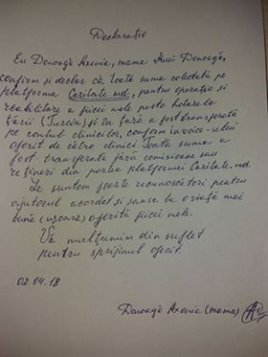 Declarație
Eu Doneagă Axenia, mama Anei Doneagă,
confirm și declar că toată suma colectată pe
platforma Caritate.md, pentru operație și
reabilitare a fiicei mele peste hotarele
țării (Turcia) și în țară a fost transferată
pe contul clinicilor, conform invoice-relui
oferit de către clinici. Toată suma a
fost transferată fără comisioane sau
rețineri din partea platformei Caritate.md.
Le suntem foarte recunoscători pentru
ajutorul acordat și șansa la o viață mai
bună (ușoară) oferită fiicei mele.
Vă mulțumim din suflet
pentru sprijinul oferit.
02.04.18
Doneagă Axenia (mama)